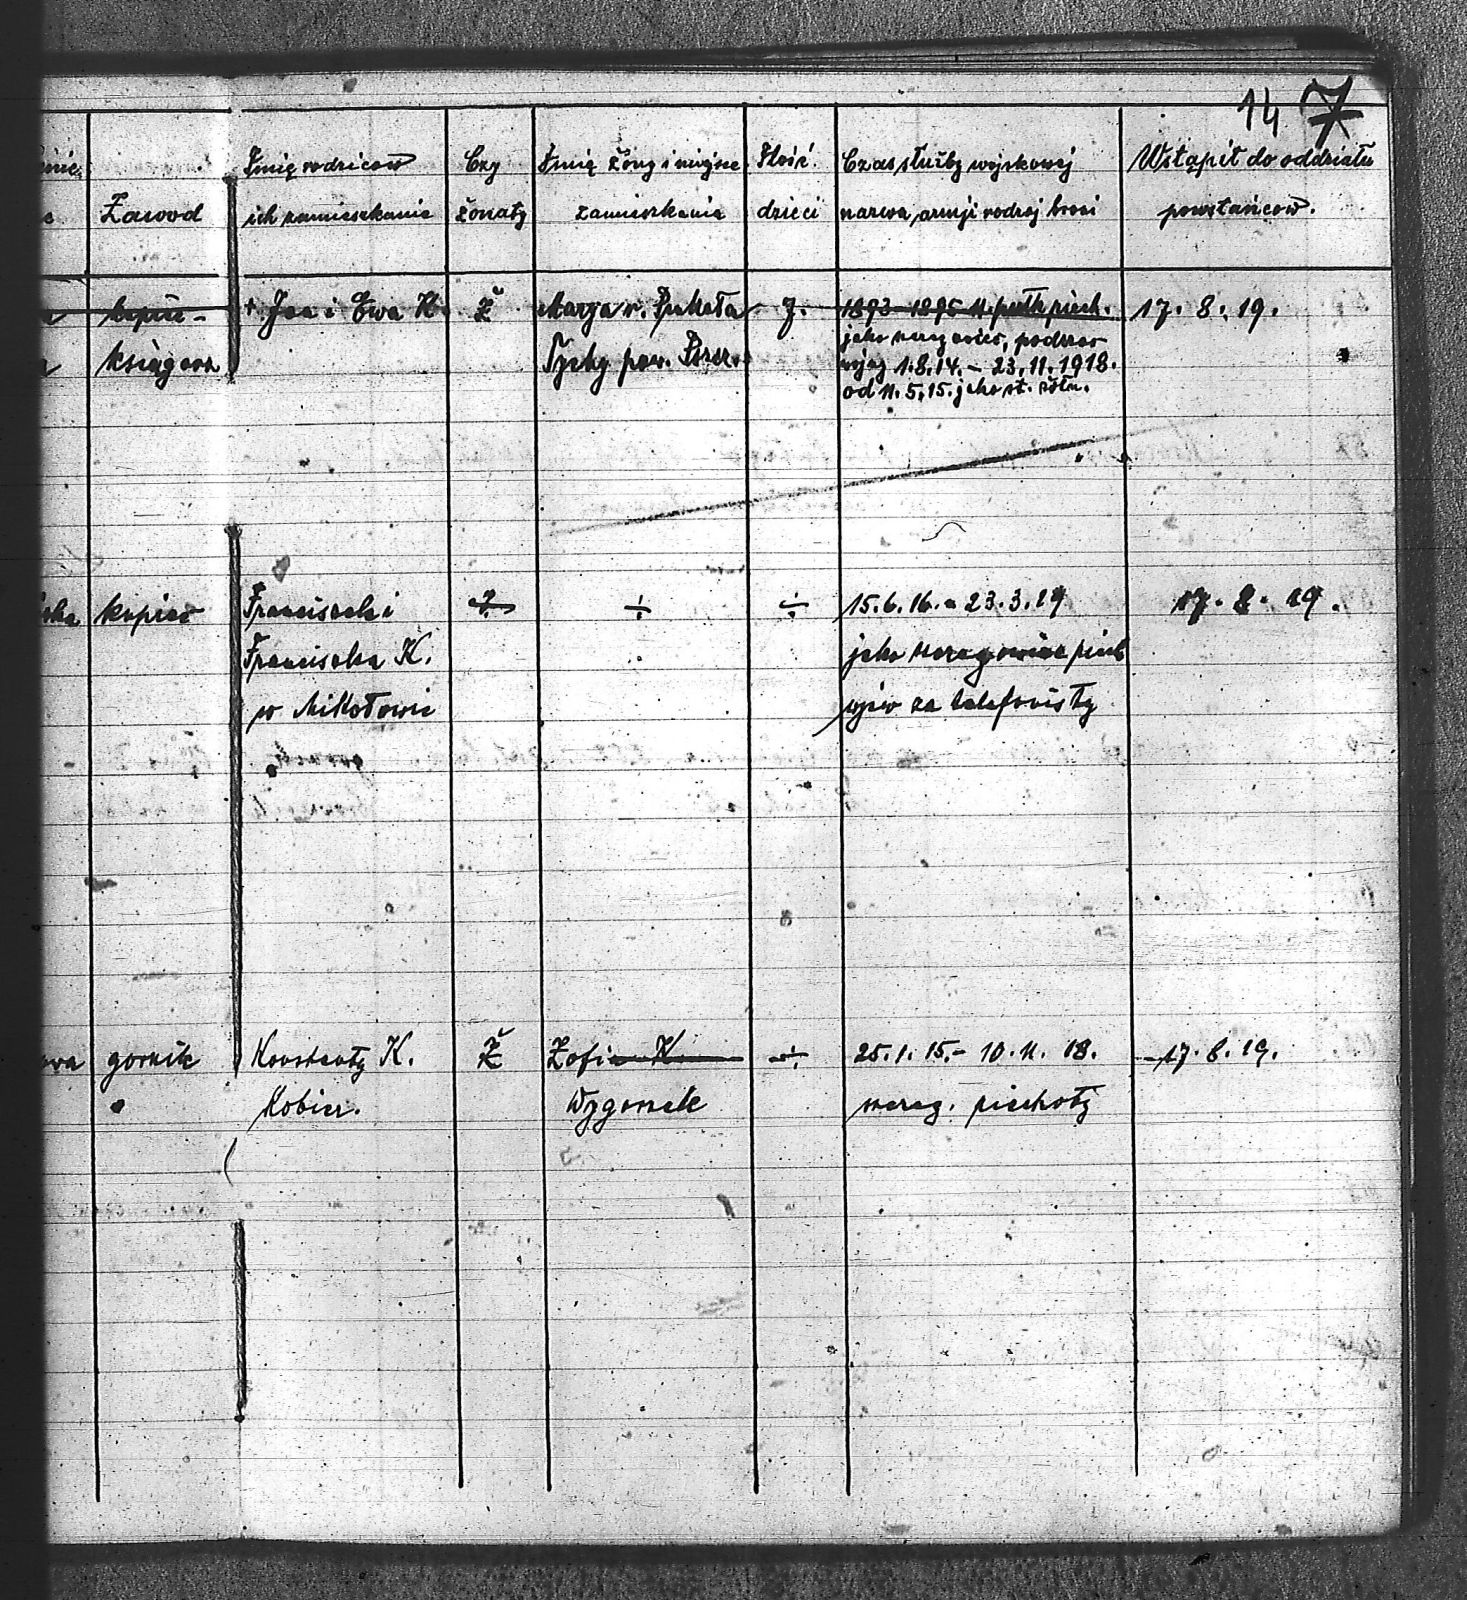 14 7
Zawód
Imię rodziców
ich zamieszkanie
Czy
żonaty
Imię żony i miejsce
zamieszkania
Ilość
dzieci
Czas służby wojskowej
nazwa, armji rodzaj broni
Wstąpił do oddziału
powstańców.
kupiec-
księgow
+ Jan i Ewa K.
Ž
Marja r.
Tychy pow. Pszcz.
7.
1893-1895 11. pułk piech.
1.8.14. - 23.11.1918.
od 11.5.15. jako st. żołn.
17. 8. 19.
kupiec
Franciszek i
Franciszka K.
w Mikołowie
÷
÷
15.6.16. - 23.3.19
jako
za telefonisty
17. 8. 19.
górnik
Konstanty K.
Kobier.
Ž
Zofia K
Wygorzele
÷
25.1.15. - 10.11.18.
szereg. piechoty
17. 8. 19.